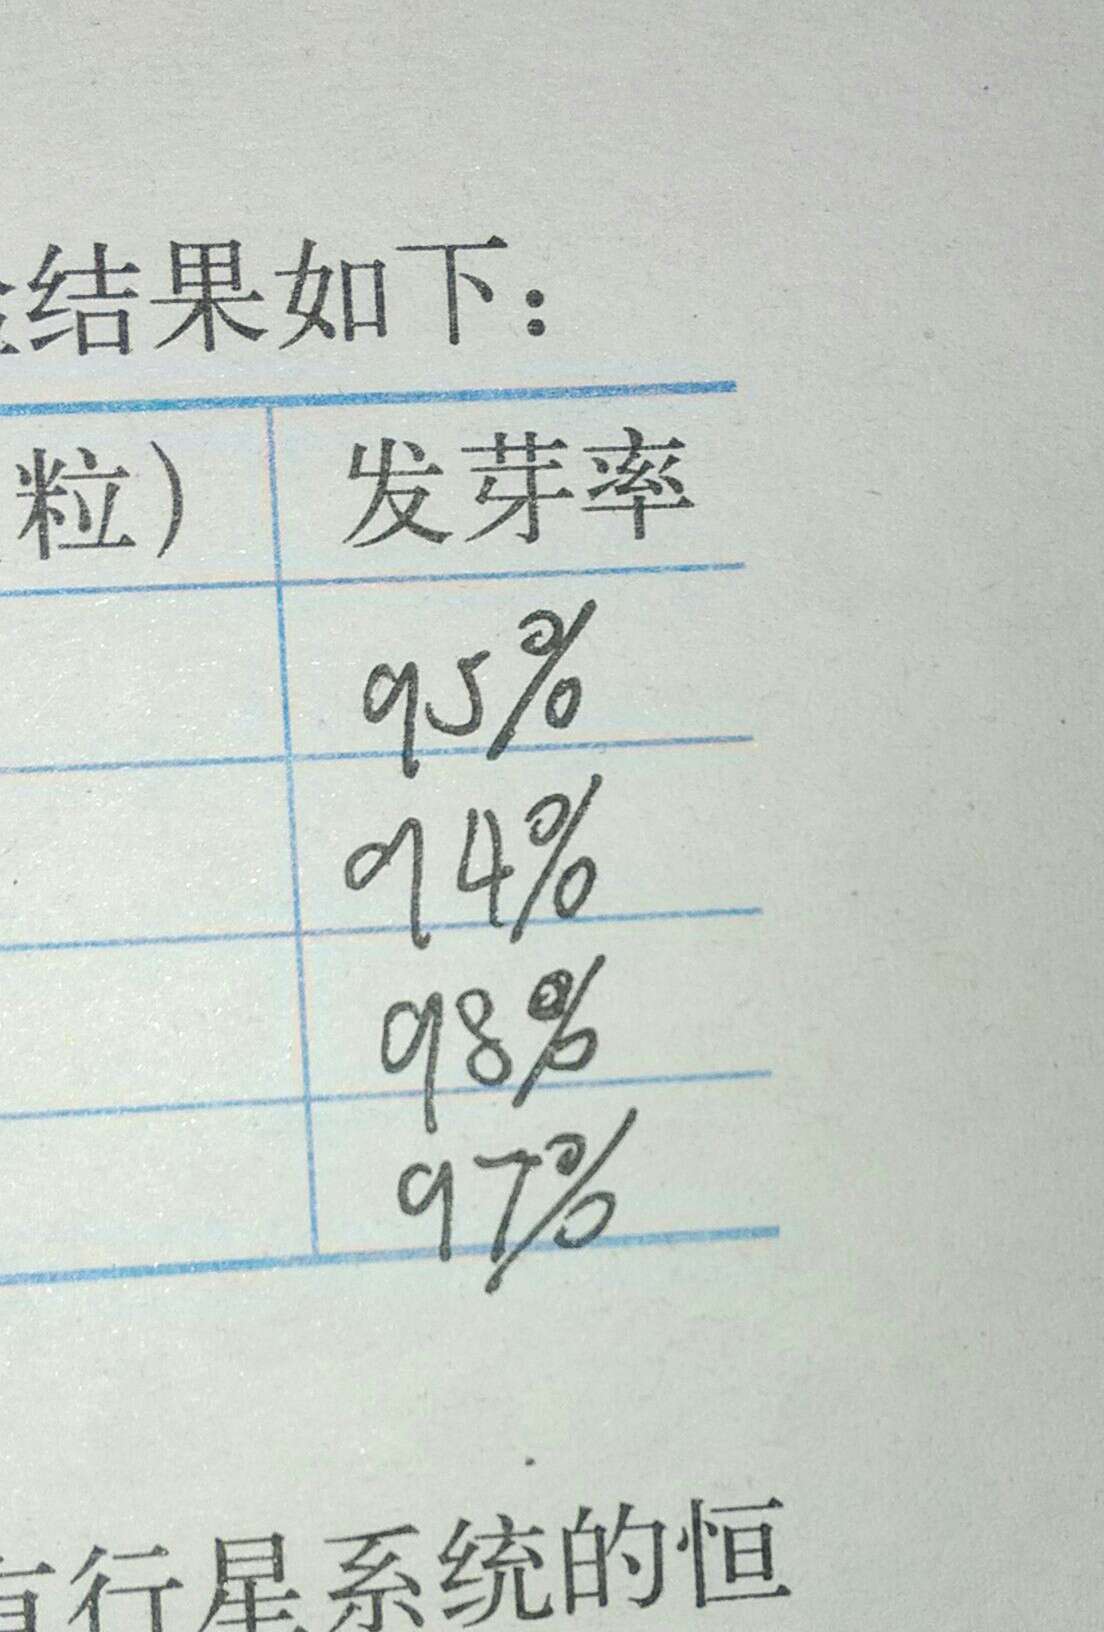 结果如下：
粒） 发芽率
95%
94%
98%
97%
行星系统的恒